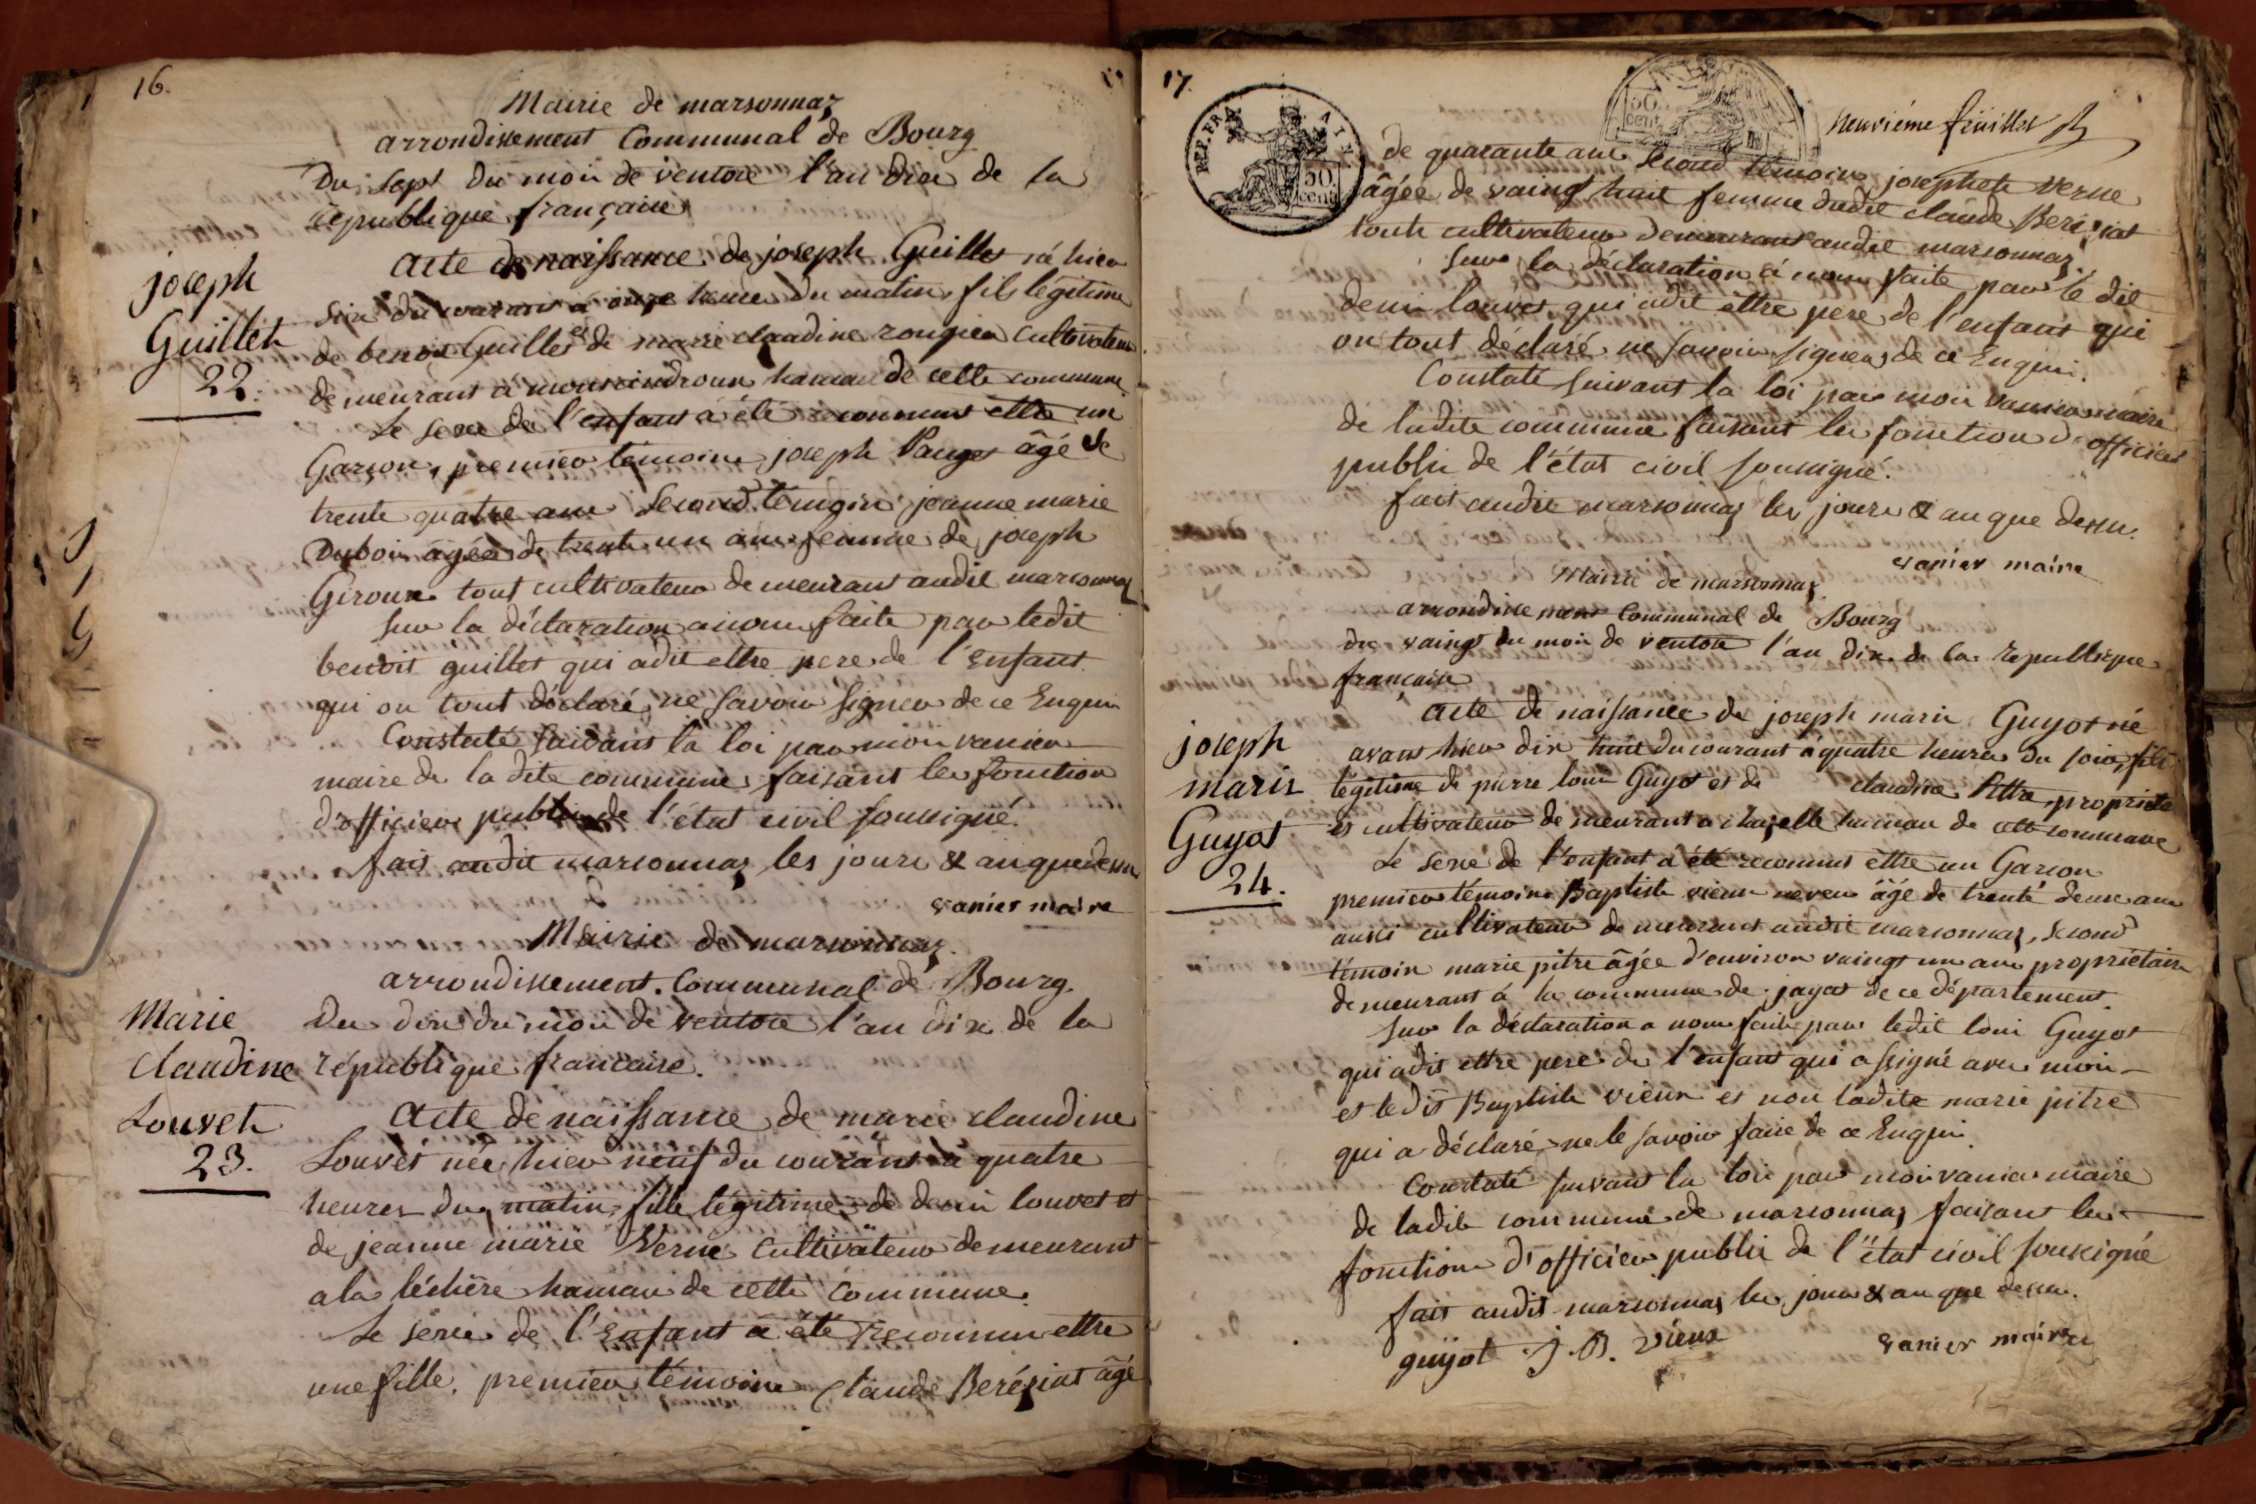 16.
Mairie de marsonnaz
arrondissement Communal de Bourg
Du sept du mois de ventose l'an dix de la
république française
acte de naissance de joseph Guillet né hier
joseph
Guillet
22.
six du courant à onze heures du matin, fils légitime
de benoit Guillet et de marie claudine rongier cultivateurs
demeurant à hamau de cette commune
Le sexe de l'enfant à été reconnus ettre un
Garson, premier témoins joseph Pauget âgé de
trente quatre ans second témoin jeanne marie
Dubois âgée de trente un ans femme de joseph
Giroux tout cultivateurs demeurant audit marsonnaz
sur la déclaration a nous faite par ledit
benoit guillet qui adit ettre pere de l'enfant
qui on tout déclaré ne savoir signer de ce Enquis
Constaté suivant la loi par moi vanier
maire de la dite commune faisant les fonction
d'officier public de l'état civil soussigné.
fait audit marsonnaz les jours & an que dessus
vanier maire
Mairie de marsonnaz.
arrondissement. Communal de Bourg.
Marie
claudine
Louvet
23.
Du dix du mois de ventose l'an dix de la
république francaise.
acte de naissance de marie claudine
Louvet née hier neuf du courant a quatre
heures du matin, fille légitime de denis louvet et
de jeanne marie Verne cultivateurs demeurant
a la léchère hamau de cette commune.
Le sexe de l'enfant a été reconnu ettre
une fille. premier témoins claude Bereziat âgé
17.
REP. FRA.
50
cent.
50
cent
neuvième feuillet
de quarante ans second témoins josephete Verne
âgée de vaingt huit femme dudit claude Bereziat
touts cultivateurs demeurant audit marsonnaz.
sur la déclaration à nous faite par le dit
denis louvet qui adit ettre pere de l'enfant qui
on tout déclaré ne savoir signer de ce Enquis.
Constaté suivant la loi par moi vanier maire
de ladite commune faisant les fonction d'officier
public de l'état civil soussigné.
fait audit marsonnaz les jours & an que dessus.
vanier maire
Mairie de marsonnaz.
arrondissement Communal de Bourg
du vaingt du mois de ventose l'an dix de la republique
française
acte de naissance de joseph marie Guyot né
joseph
marie
Guyot
24.
avant hier dix huit du courant à quatre heures du soir, fils
légitime de pierre louis Guyot et de claudine Pitre, propriétaire
et cultivateurs demeurant a chazelle hamau de cette commune
Le sexe de l'enfant a été reconnus ettre un Garson
premier témoins Baptiste vieux neveu âgé de trente deux ans
aussi cultivateur demeurant audit marsonnaz, second
témoin marie pitre âgée d'environ vaingt un ans propriétaire
demeurant à la commune de jayat de ce département.
sur la déclaration a nous faite par ledit loui Guyot
qui adit ettre pere de l'enfant qui a signé avec moi
et ledit Baptiste vieux et non ladite marie pitre
qui a déclaré ne le savoir faire de ce Enquis.
Constaté suivant la loi par moi vanier maire
de ladite commune de marsonnaz faisant les
fonctions d'officier public de l'état civil soussigné
fait audit marsonnaz les jours & an que dessus.
guyot J. B. vieux vanier maire